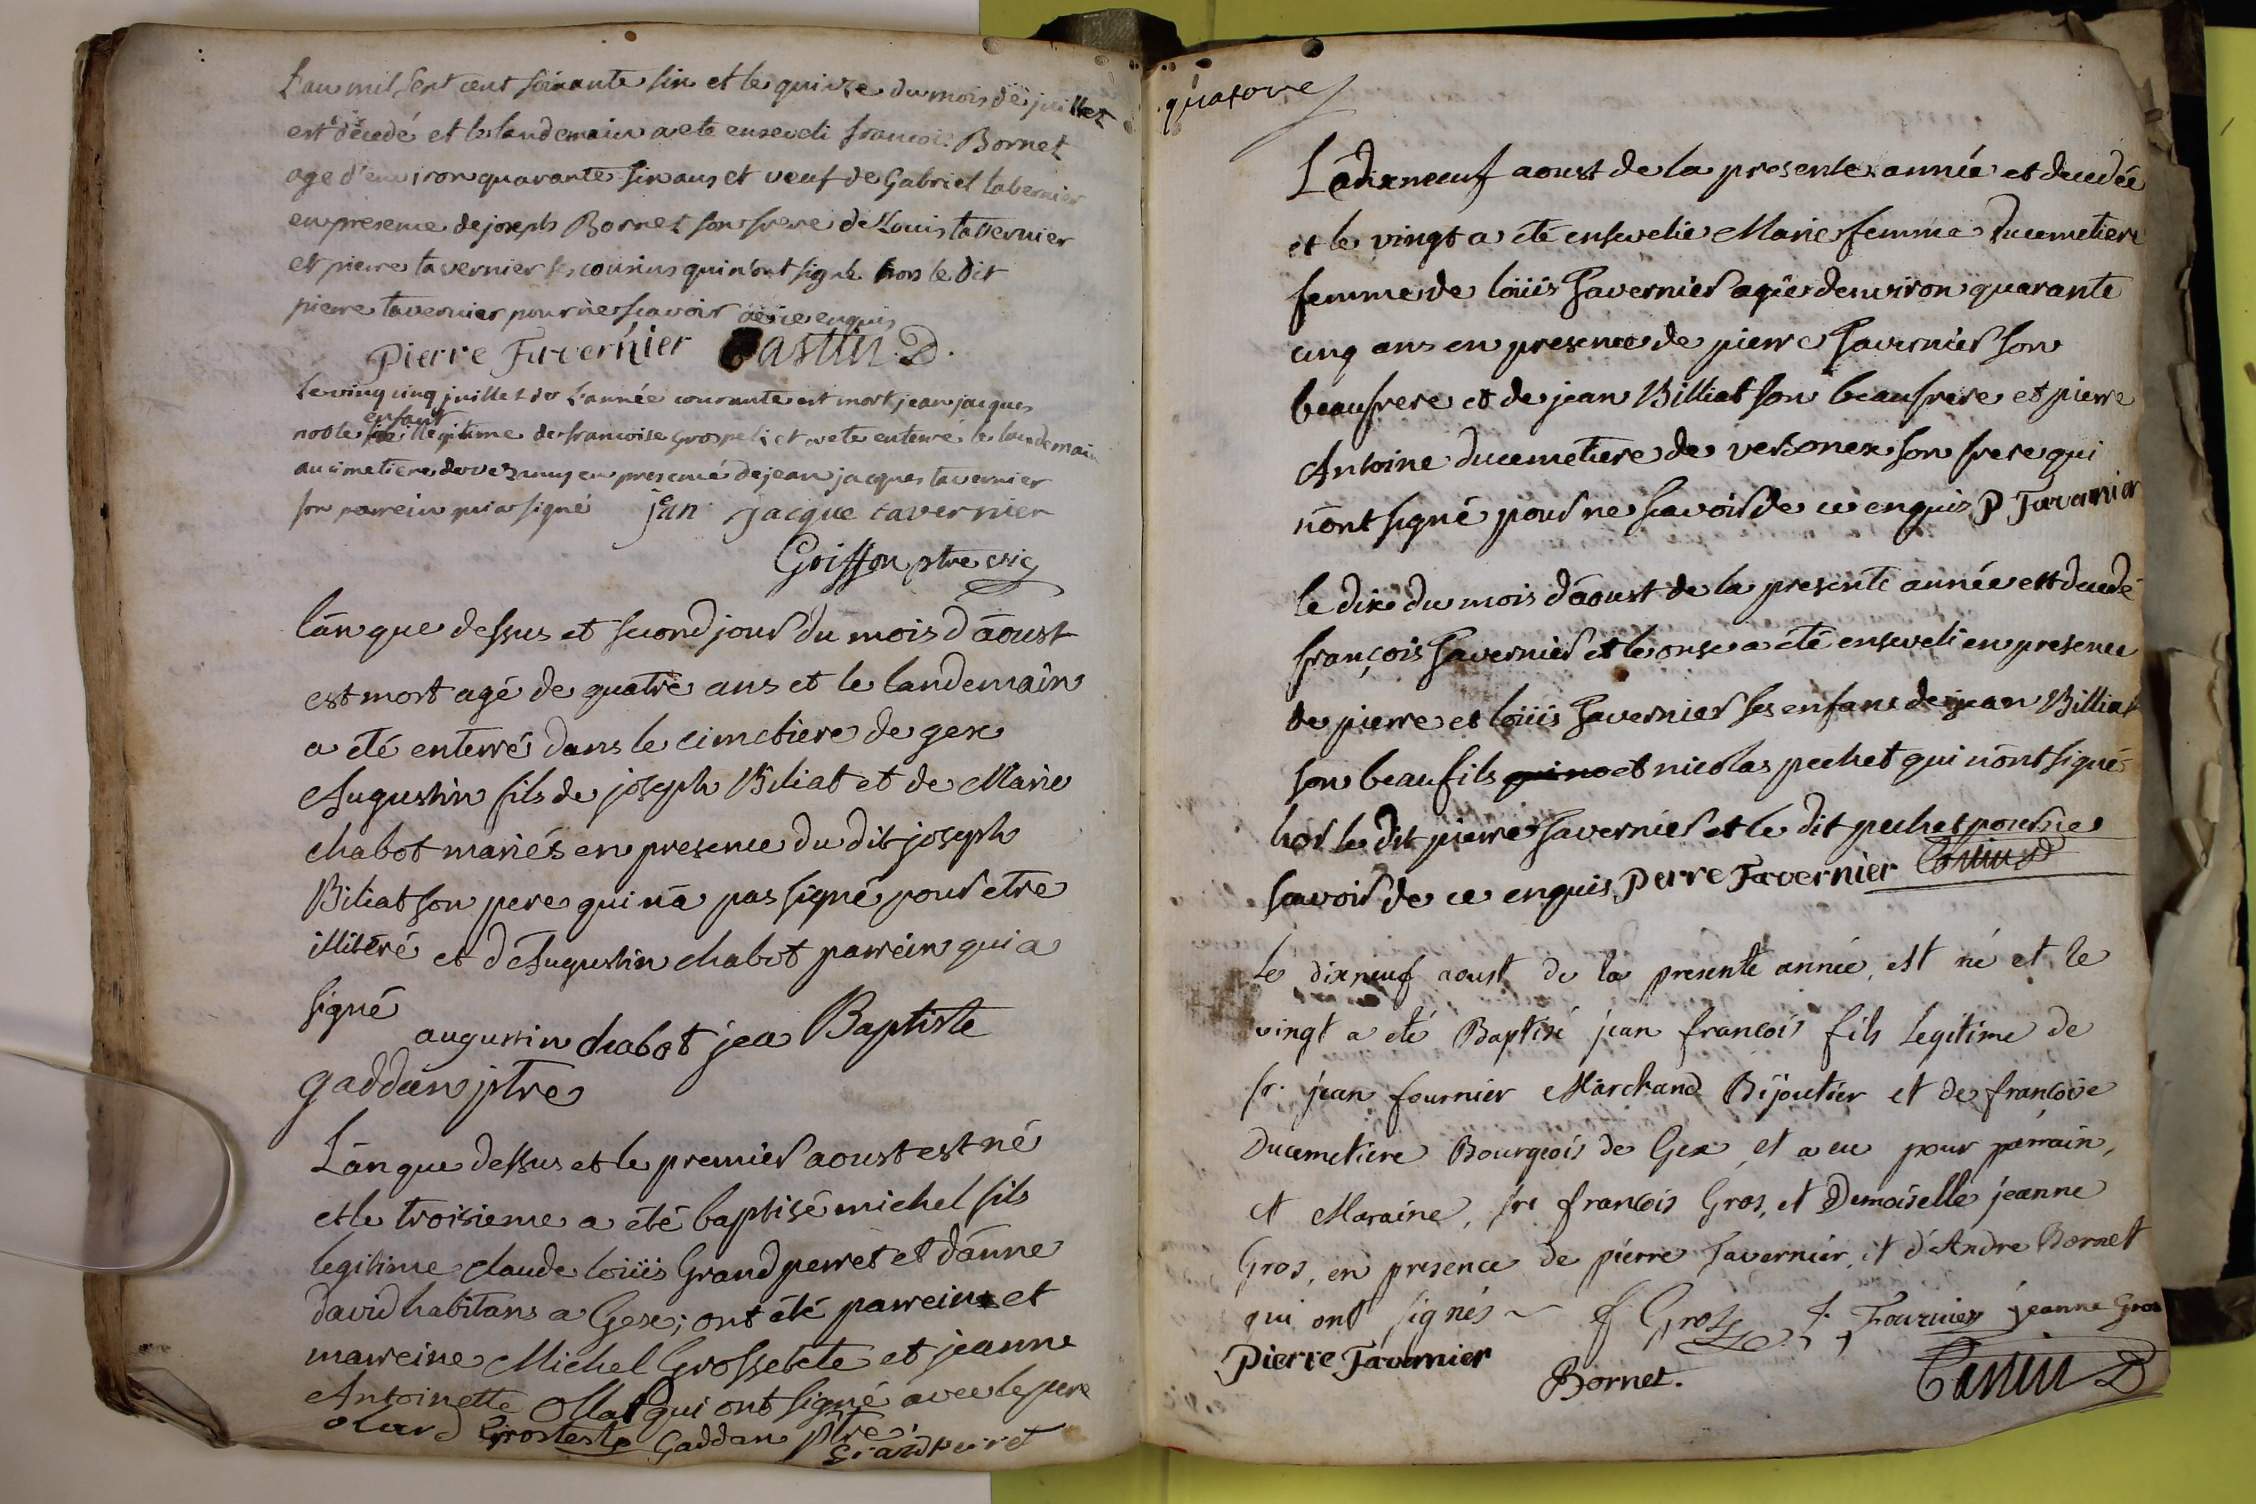 L'an mil sept cent soixante six et le quinze du mois de juillet
est décedé et le landemain a ete enseveli francois Bornet
age d'environ quarante six ans et veuf de Gabriel tabernier
en presence de joseph Bornet son frere de Louis tavernier
et pierre tavernier ses cousins qui n'ont signé hors le dit
pierre tavernier pour ne scavoir de ce enquis
Pierre Tavernier Castin D.
Le vingt cinq juillet de L'année courante est mort jean jacques
enfant
noble illegitime de francoise Grospeli et a ete enterré le landemain
au cimetiere de vezanuy en presence de jean jacques tavernier
son parrein qui a signé jean jacque tavernier
Goiffon ptre vic
l'an que dessus et second jour du mois d'aoust
est mort agé de quatre ans et le landemain
a été enterré dans le cimetiere de gex
Augustin fils de joseph Biliat et de Marie
chabot mariés en presence du dit joseph
Biliat son pere qui n'a pas signé pour etre
illiteré et d'Augustin chabot parrein qui a
signé
augustin chabot jea Baptiste
gaddan ptre
L'an que dessus et le premier aoust est né
et le troisieme a été baptisé michel fils
legitime claude loüis Grandperret et d'anne
david habitans a Gex; ont été parrein et
marreine Michel Grosseteste et jeanne
Antoinette Ollard qui ont signé avec le pere
olard Grosteste Gaddan ptre Grandperret
quatorze
Le dixneuf aoust de la presente année est decedée
et le vingt a été ensevelie Marie femme Ducemetiere
femme de loüis Tavernier agée d'environ quarante
cinq ans en presence de pierre Tavernier son
beaufrere et de jean Billiat son beaufrere et pierre
Antoine ducemetiere de versonex son frere qui
n'ont signé pour ne scavoir de ce enquis P Tavernier
le dix du mois d'aoust de la presente année est decedé
françois Tavernier et le onse a été enseveli en presence
de pierre et loüis Tavernier ses enfans de jean Billiat
son beaufils qui no et nicolas pechet qui n'ont signé
hor le dit pierre Tavernier et le dit pechet pour ne
savoir de ce enquis Pierre Tavernier Castin D
Le dixneuf aoust de la presente année, est né et le
vingt a eté Baptisé jean francois fils Legitime de
sr. jean fournier Marchand Bijoutier et de francoise
Ducemetiere Bourgeois de Gex, et a eu pour parrain,
et Maraine, sre francois Gros, et Demoiselle jeanne
Gros, en presence de pierre Tavernier, et d'Andre Bornet
qui ont signés ~ f Gros J. Fournier jeanne Gros
Pierre Tavernier Bornet. Castin D